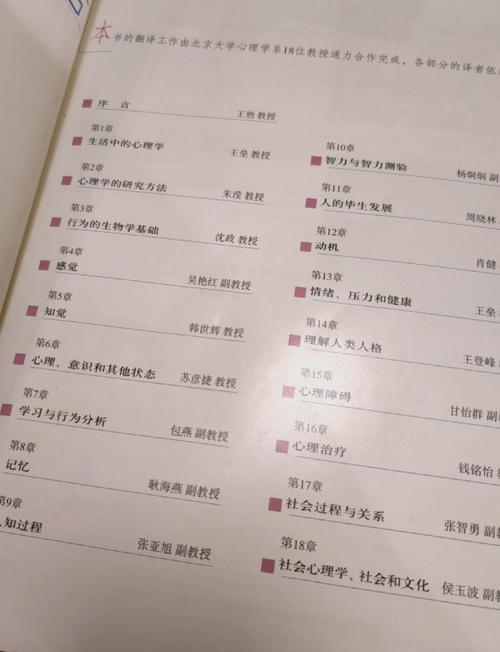 本书的翻译工作由北京大学心理学系18位教授通力合作完成，各部分的译者依
序 言 王甦 教授
第1章
生活中的心理学 王垒 教授
第2章
心理学的研究方法 朱滢 教授
第3章
行为的生物学基础 沈政 教授
第4章
感觉 吴艳红 副教授
第5章
知觉 韩世辉 教授
第6章
心理、意识和其他状态 苏彦捷 教授
第7章
学习与行为分析 包燕 副教授
第8章
记忆 耿海燕 副教授
第9章
知过程 张亚旭 副教授
第10章
智力与智力测验 杨炯炯 副
第11章
人的毕生发展 周晓林
第12章
动机 肖健
第13章
情绪、压力和健康 王垒
第14章
理解人类人格 王登峰
第15章
心理障碍 甘怡群 副
第16章
心理治疗 钱铭怡
第17章
社会过程与关系 张智勇 副
第18章
社会心理学、社会和文化 侯玉波 副